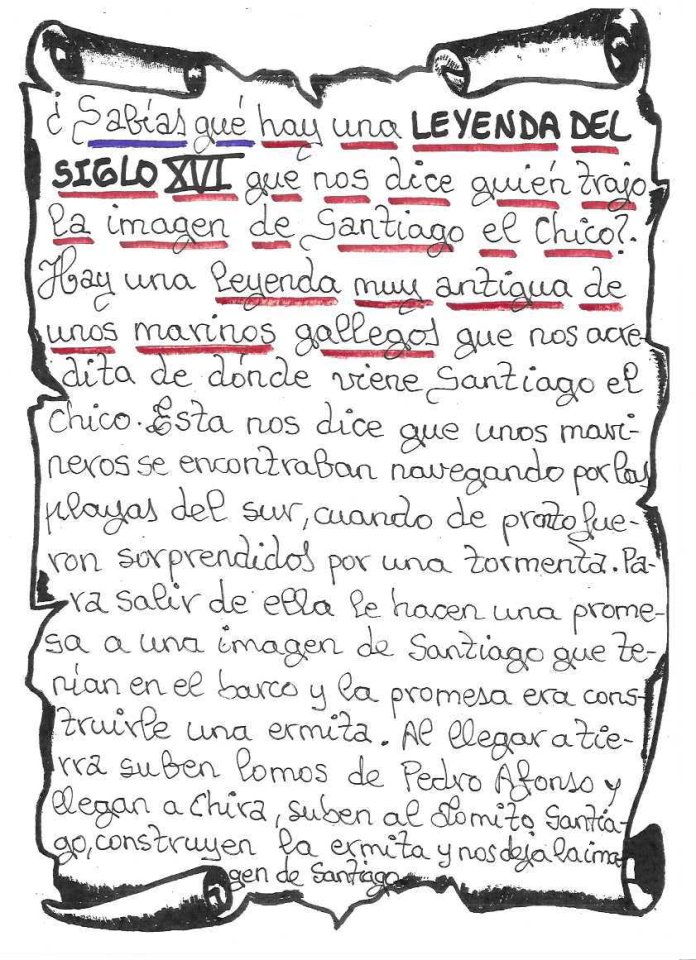 ¿Sabías qué hay una LEYENDA DEL
SIGLO XVI que nos dice quién trajo
la imagen de Santiago el Chico?.
Hay una leyenda muy antigua de
unos marinos gallegos que nos acre-
dita de dónde viene Santiago el
Chico. Esta nos dice que unos mari-
neros se encontraban navegando por las
playas del sur, cuando de pronto fue-
ron sorprendidos por una tormenta. Pa-
ra salir de ella le hacen una prome-
sa a una imagen de Santiago que te-
nían en el barco y la promesa era cons-
truirle una ermita. Al llegar a tie-
rra suben lomos de Pedro Afonso y
llegan a Chira, suben al Lomito Santia-
go, construyen la ermita y nos deja la ima-
gen de Santiago.